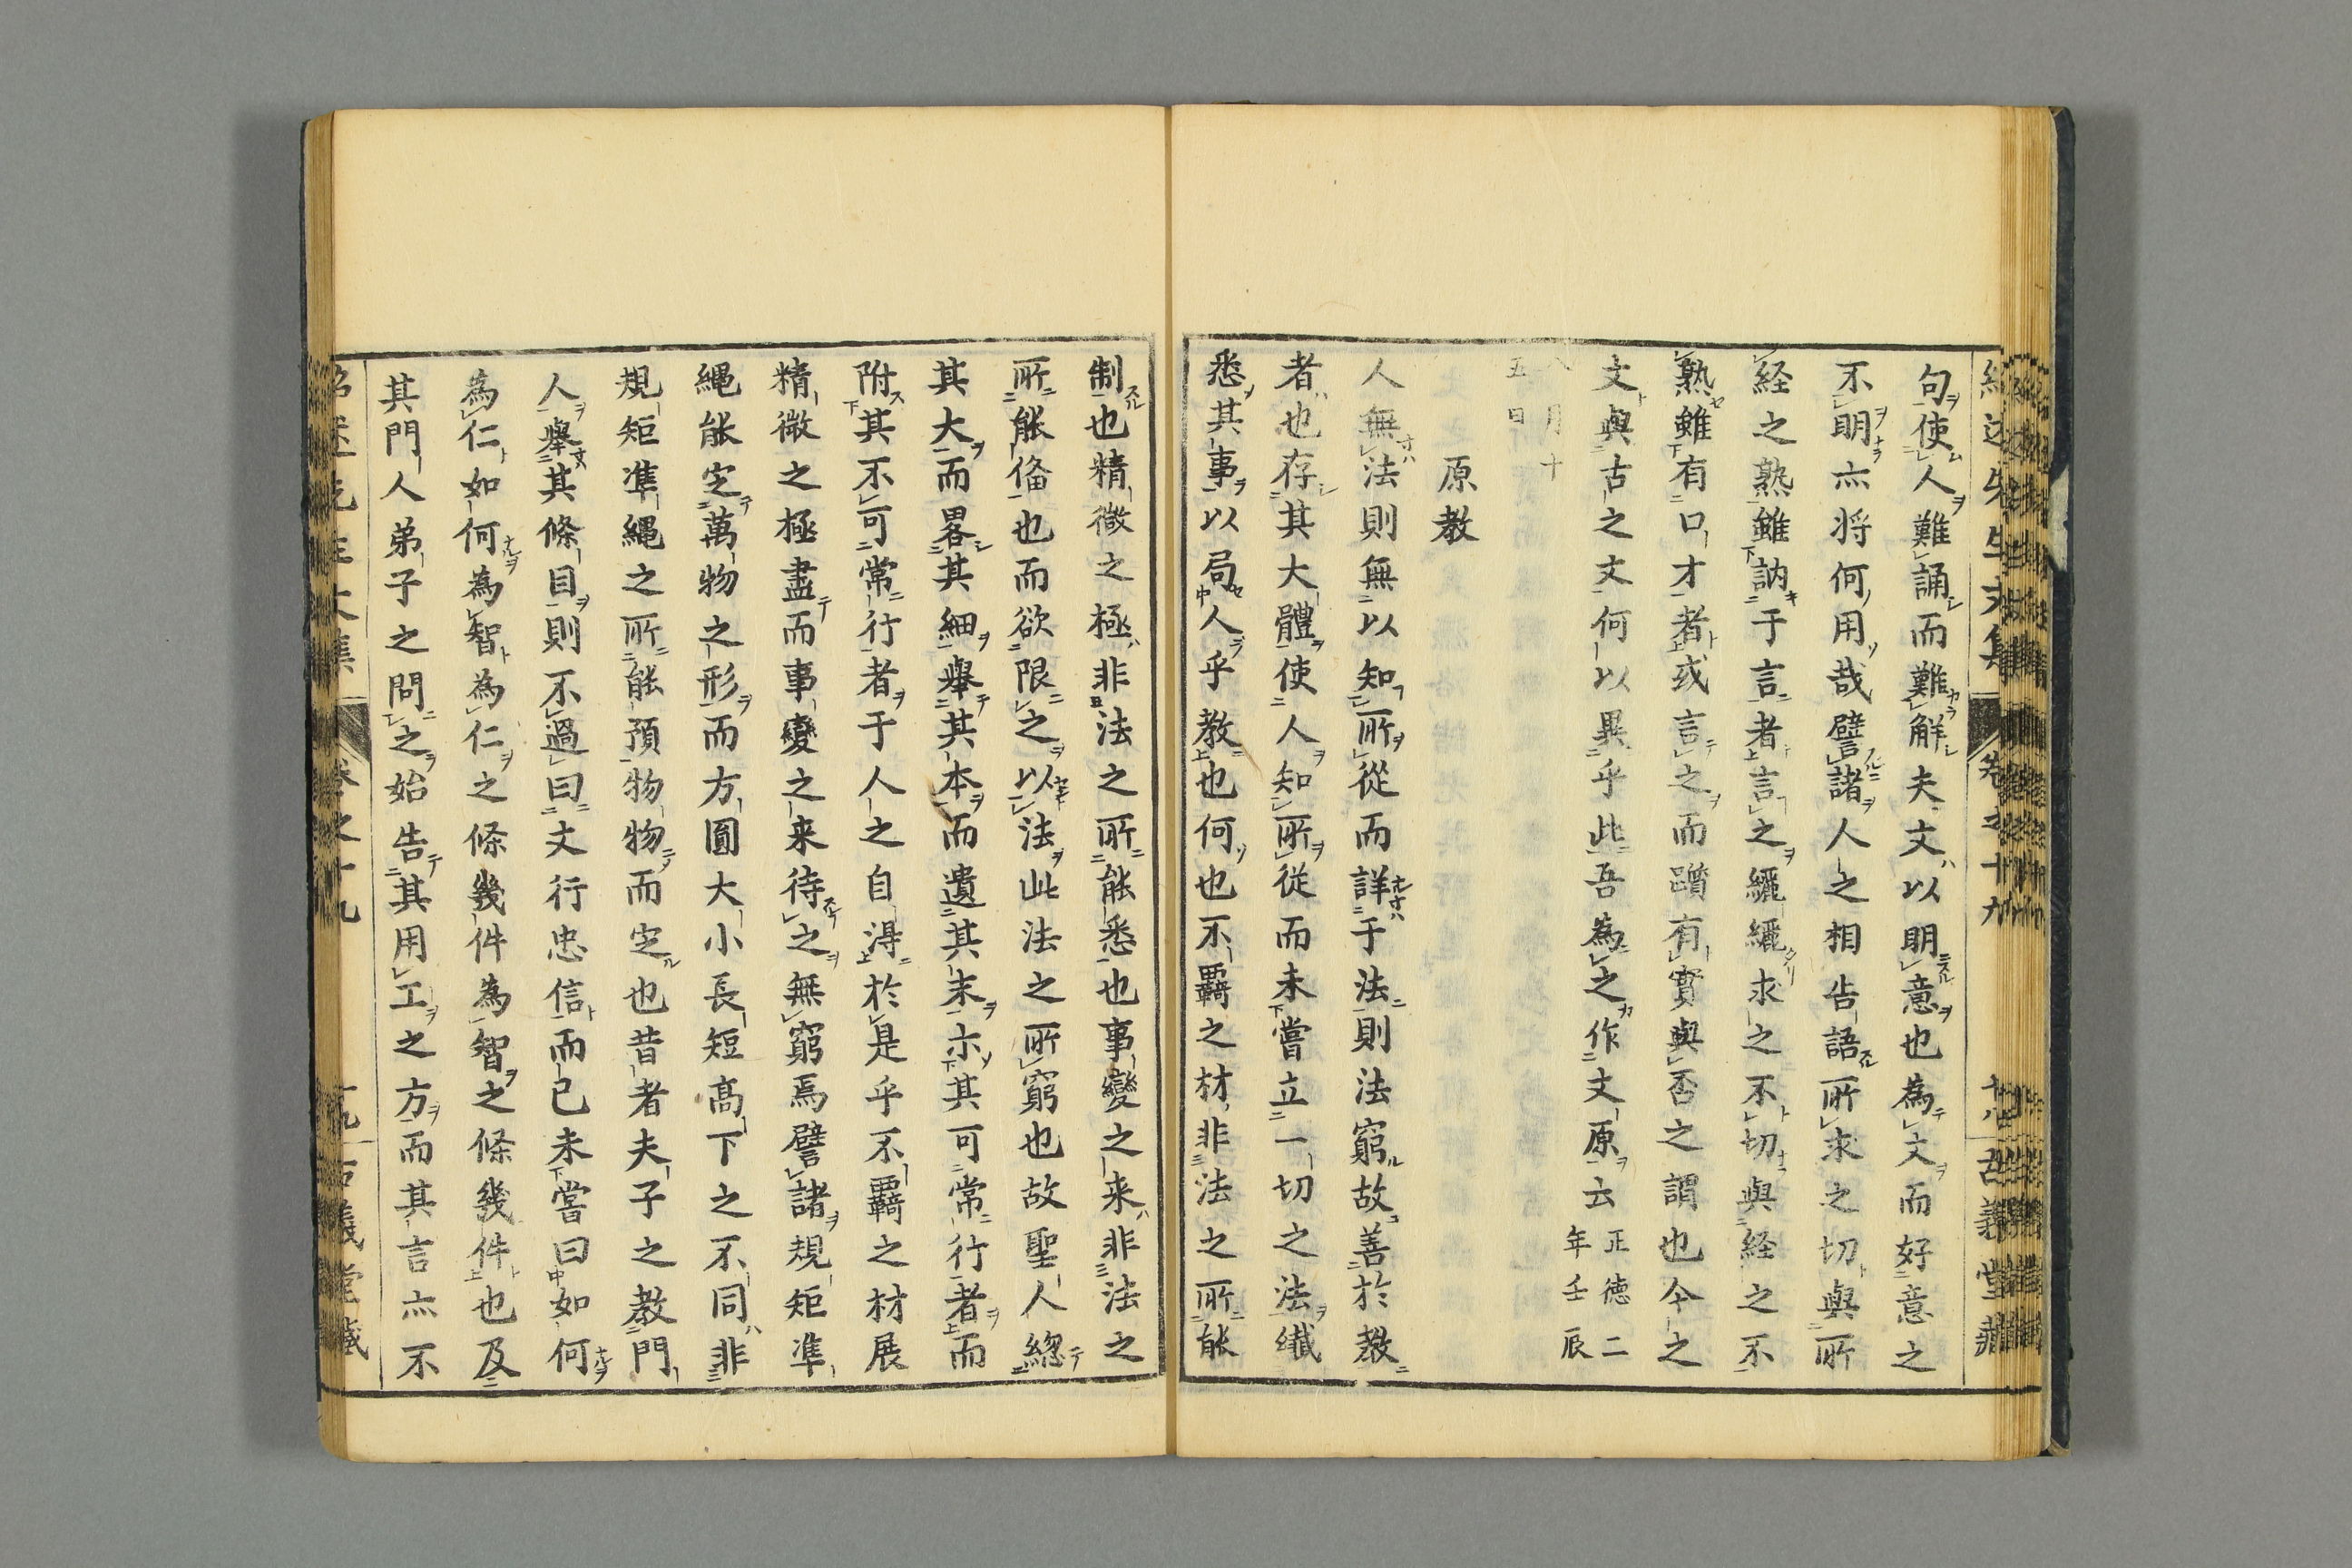 紹述先生文集 卷之十九 十八 古義堂藏
句使人難誦而難解夫文以明意也為文而好意之
不明亦将何用哉譬諸人之相告語所求之切與所
経之熟雖訥于言者言之纚纚求之不切與経之不
熟雖有口才者或言之而躓有實與否之謂也今之
文與古之文何以異乎此吾為之作文原云正德二年壬辰
八月十五日
原教
人無法則無以知所從而詳于法則法窮故善於教
者也存其大體使人知所從而未嘗立一切之法纖
悉其事以局人乎教也何也不覊之材非法之所能
制也精微之極非法之所能悉也事變之来非法之
所能俻也而欲限之以法此法之所窮也故聖人緫
其大而畧其細舉其本而遺其末亦其可常行者而
附其不可常行者于人之自淂於是乎不覊之材展
精微之極盡而事變之来待之無窮焉譬諸規矩準
繩能定萬物之形而方圓大小長短高下之不同非
規矩準繩之所能預物物而定也昔者夫子之教門
人舉其條目則不過曰文行忠信而已未嘗曰如何
為仁如何為智為仁之條幾件為智之條幾件也及
其門人弟子之問之始告其用工之方而其言亦不
紹述先生文集 卷之十九 十九 古義堂藏